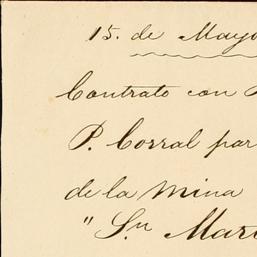 15. de Mayo
Contrato con
P. Corral par
de la mina
"Sn Mar